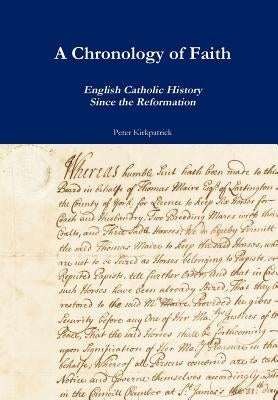 A Chronology of Faith
English Catholic History
Since the Reformation
Peter Kirkpatrick
Whereas humble Suit hath been made to the
Board in behalfe of Thomas Maire Esqr of Lartington
the County of York, for Licence to keep Six Horses for
Coach and Husbandry, Two Breeding Mares with their
Colts, and Three Sadle Horses; We do hereby Permitt the
said Thomas Maire to keep the said Horses, wh
are not to be Seized as Horses belonging to Papists, or
Reputed Papists, till further Order, And that in Case
such Horses have been already Seized, That they be
restored to the said Mr Maire, Provided he gives
Security before any One of Her Maj.ts Justices of the
Peace, That the said Horses shall be forthcoming
upon Signification of Her Maj.ts Pleasure in that
behalfe; Whereof all Persons concerned are to take
Notice and Governe themselves accordingly. D
in the Councill Chamber at St James's the 31th day